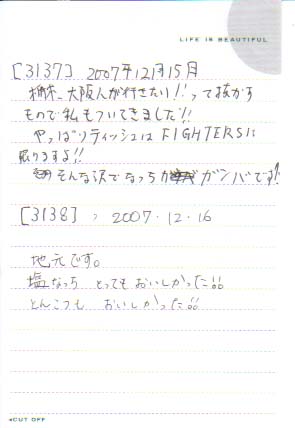 LIFE IS BEAUTIFUL
[3137] 2007年12月15日
大阪人が行きたい!!って抜かす
もので私もついてきました!!
やっぱりティッシュはFIGHTERSに
限りまする!!
そんな訳でなっちガンバです!
[3138] 2007.12.16
地元です。
塩なっち とっても おいしかった!!
とんこつも おいしかった!!
CUT OFF